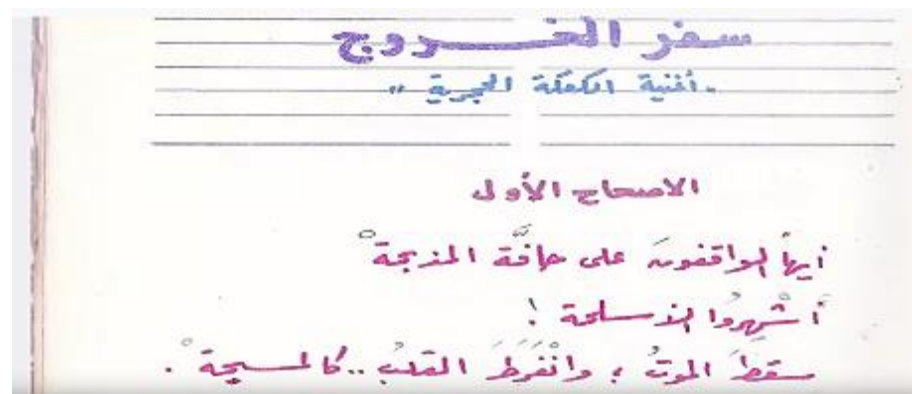 سفر الخـــروج
"أغنية الكعكة الحجرية"
الاصحاح الأول
أيها الواقفونَ على حافَّة المذبحةْ
أشْهِرُوا الأسلحة !
سقطَ الموتُ ؛ وانْفَرَطَ القلبُ .. كالمسبحةْ .